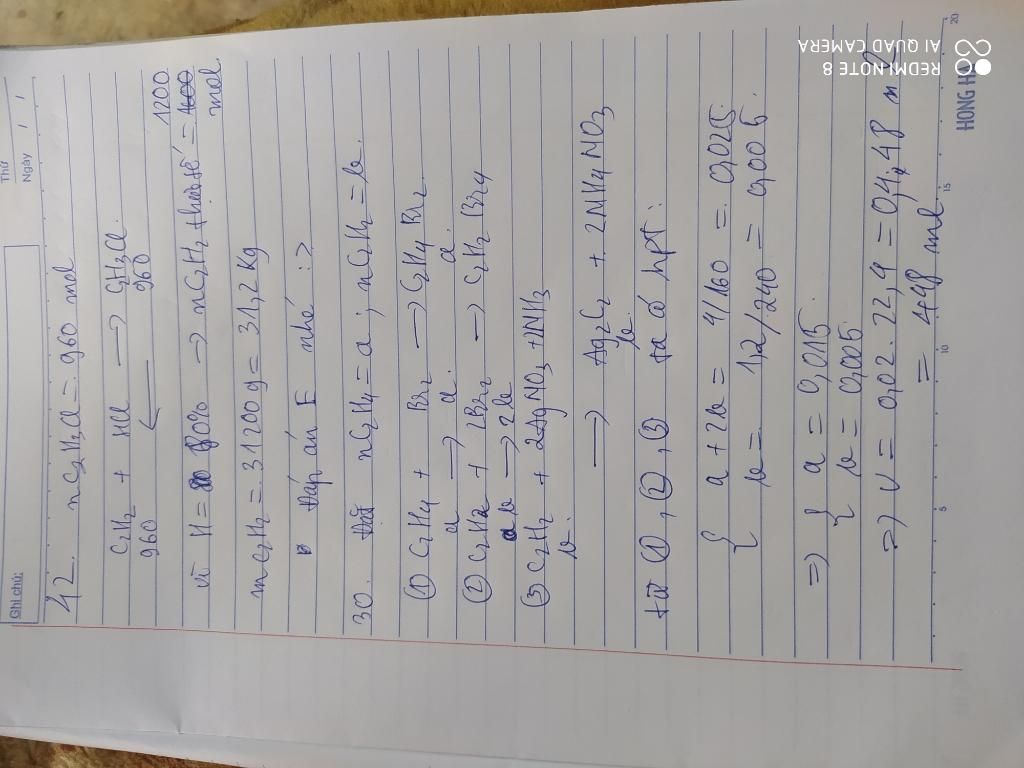 Thứ
Ngày / /
Ghi chú:
42. nC2H3Cl = 960 mol
C2H2 + HCl → C2H3Cl
960 ← 960
1200
vì H = 80% → nC2H2 thực tế =
mol
mC2H2 = 31200g = 31,2 kg
Đáp án E nhé :>
30. nC2H4 = a ; nC2H2 = b.
① C2H4 + Br2 → C2H4Br2
a → a. a
② C2H2 + 2Br2 → C2H2Br4
b → 2b
③ C2H2 + 2AgNO3 + 2NH3
b.
→ Ag2C2 + 2NH4NO3
b
từ ①, ②, ③ ta có hpt:
{ a + 2b = 4/160 = 0,025.
b = 1,2/240 = 0,005.
=> { a = 0,015.
b = 0,005.
=> V = 0,02 . 22,4 = 0,448
= 448 ml
5 10 15 20
HONG H
REDMI NOTE 8
AI QUAD CAMERA